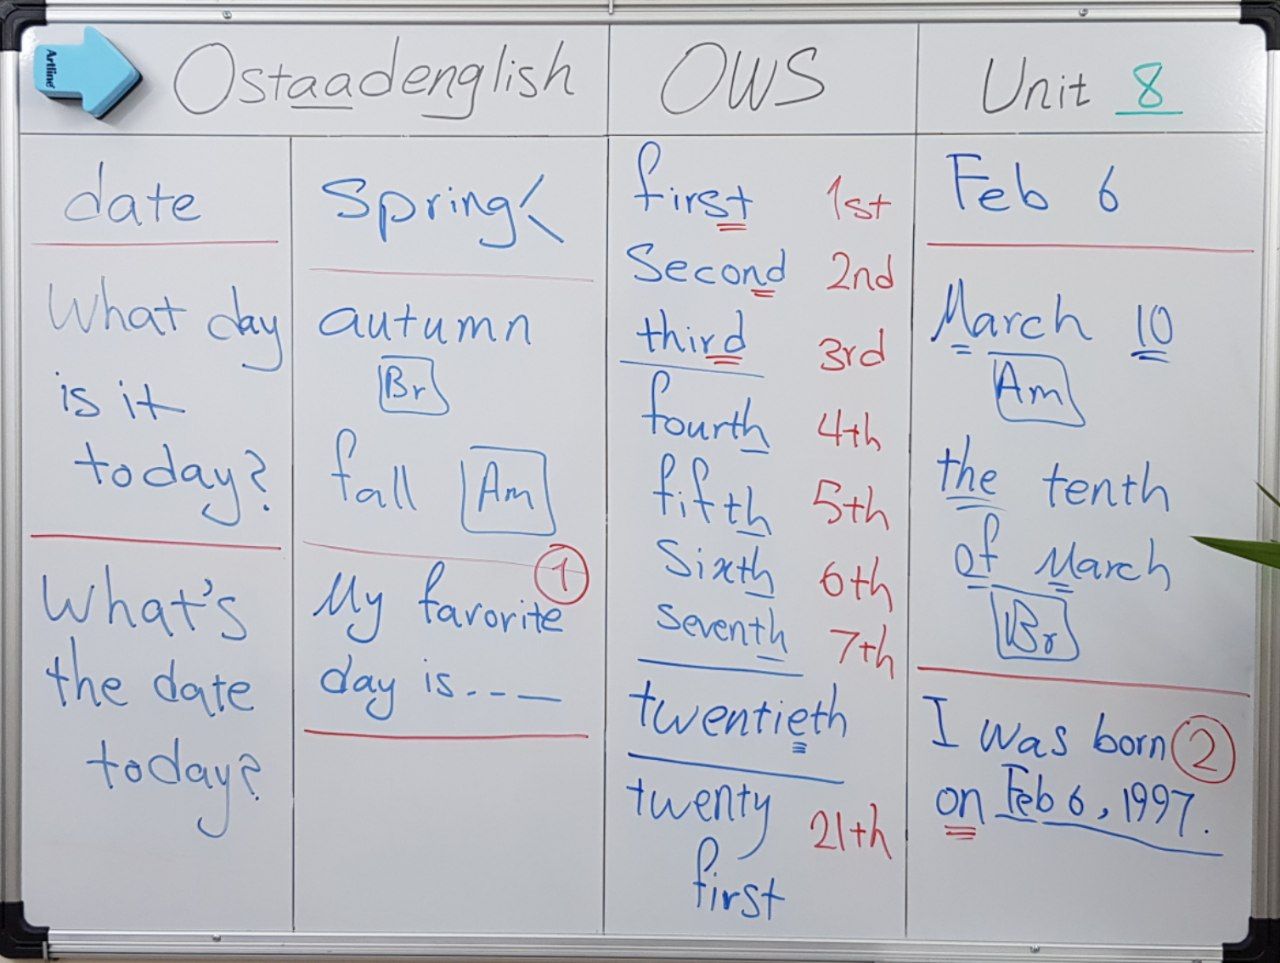 Artline
Ostaadenglish
OWS
Unit 8
date
What day
is it
today?
What's
the date
today?
Spring
autumn
Br
fall Am
1
My favorite
day is - - -
first 1st
Second 2nd
third 3rd
fourth 4th
fifth 5th
Sixth 6th
Seventh 7th
twentieth
twenty 21th
first
Feb 6
March 10
Am
the tenth
of March
Br
I was born 2
on Feb 6, 1997.